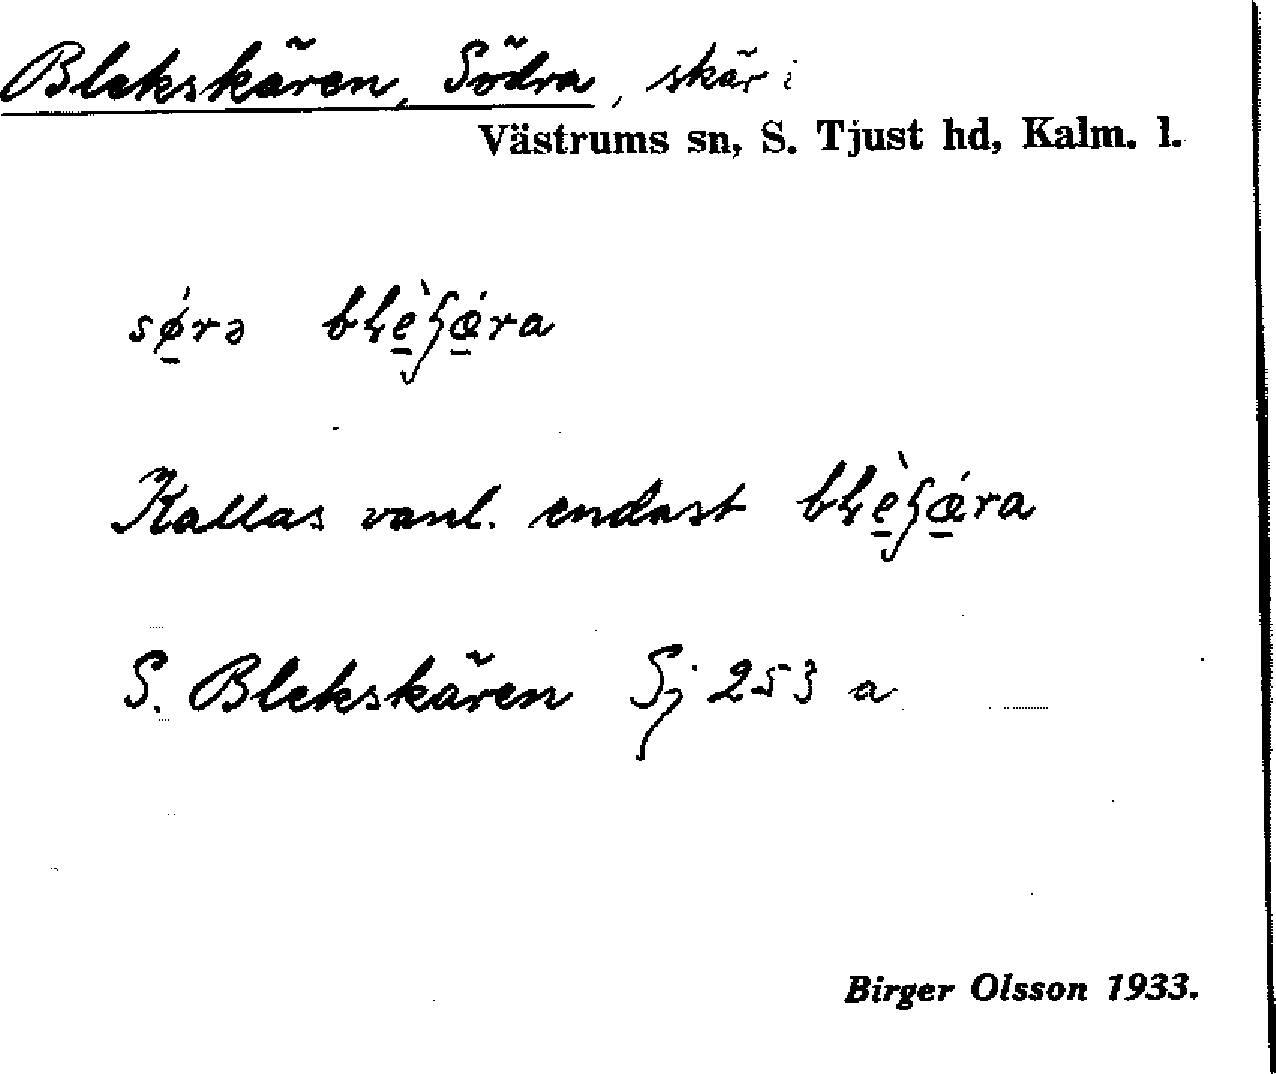 Blekskären, Södra, skär i
Västrums sn, S. Tjust hd, Kalm. l.
sǿ̱rə
Kallas vanl. endast
S. Blekskären Sj 253 a
Birger Olsson 1933.